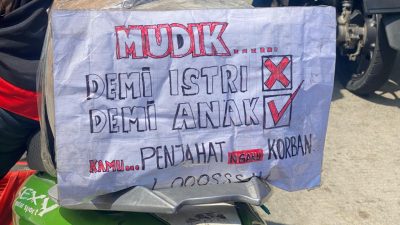 MUDIK........
DEMI ISTRI
DEMI ANAK
KAMU... PENJAHAT NGAKU KORBAN